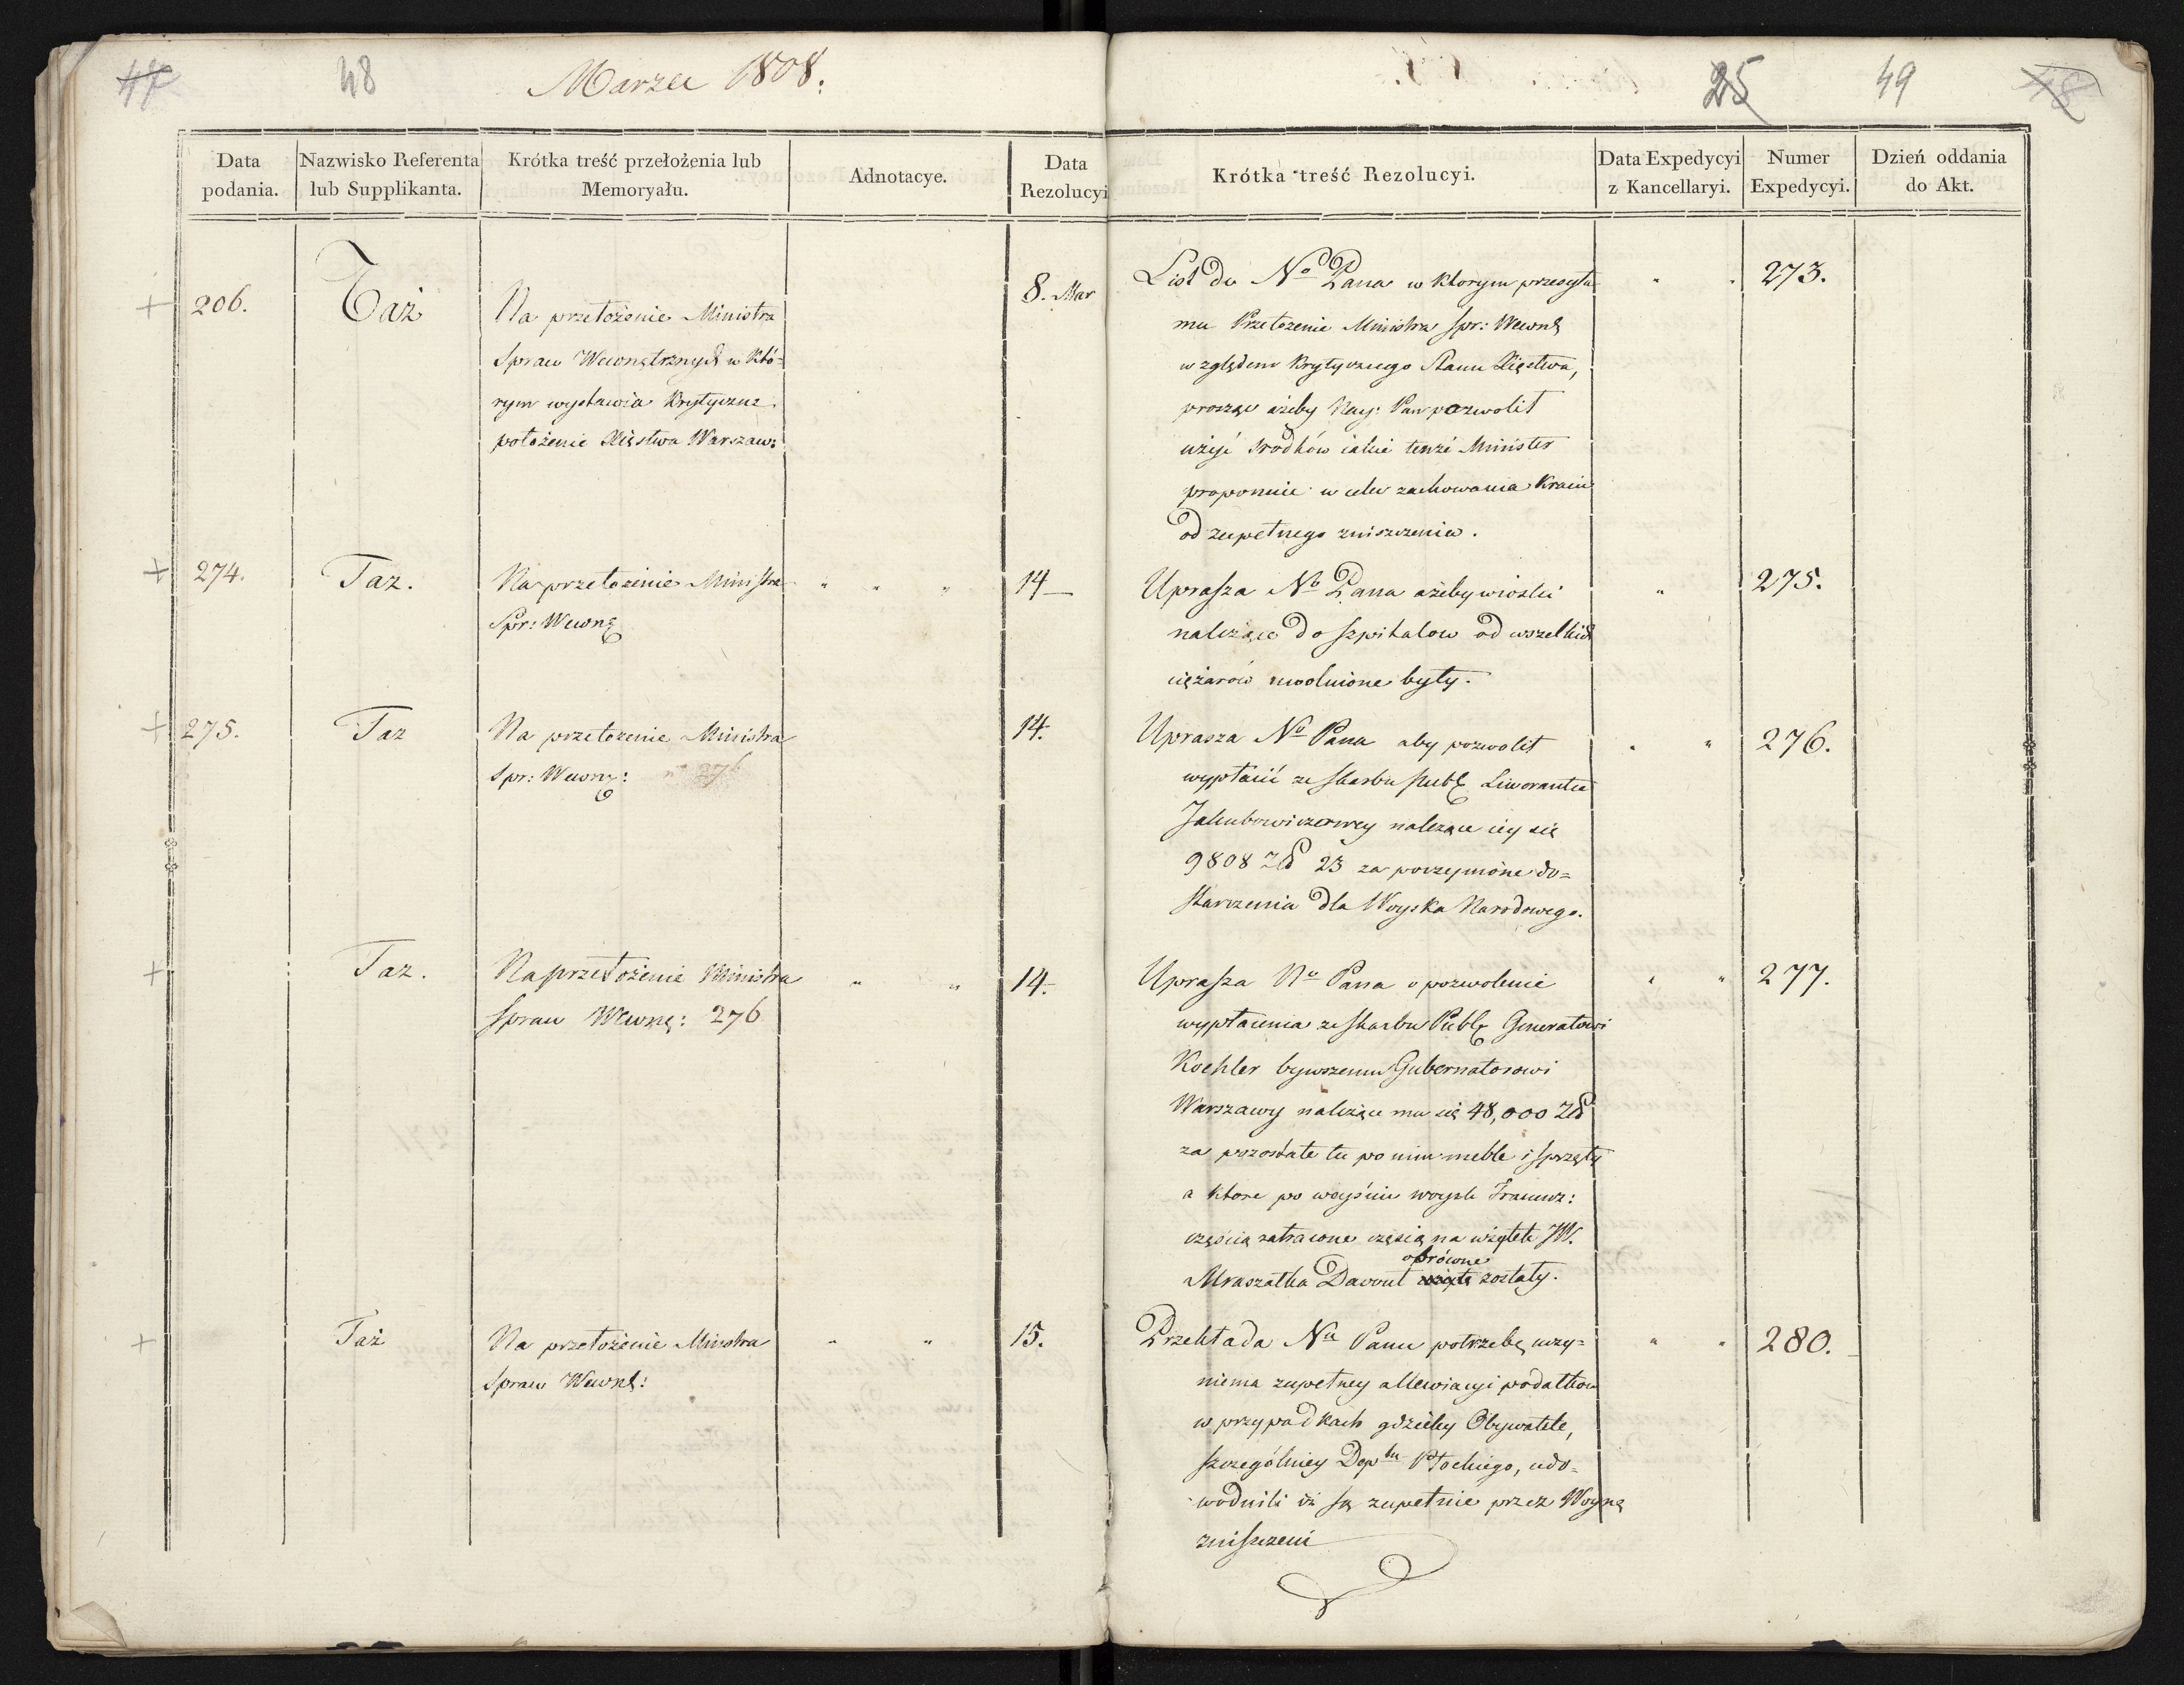 47 48 Marzec 1808.
25 49 48
Data podania.
Nazwisko Referenta lub Supplikanta.
Krótka treść przełożenia lub Memoryału.
Adnotacye.
Data Rezolucyi
Krótka treść Rezolucyi.
Data Expedycyi z Kancellaryi.
Numer Expedycyi.
Dzień oddania do Akt.
+ 206.
Taż
Na przełożenie Ministra
Spraw Wewnętrznych w któ=
rym wystawia krytyczne
położenie Xięstwa Warszaw:
8. Mar
List do No Pana w ktorym przesyła
mu Przełozenie Ministra Spr: Wewnę
względem krytycznego Stanu Xięstwa,
prosząc ażeby Nay: Pan pozwolił
użyć srodków iakie tenże Minister
proponuie w celu zachowania Kraiu
od zupełnego zniszczenia.
" "
273.
+ 274.
Taz.
Na przełozenie Ministra
Spr: Wewnę
" " "
14 —
Uprasza No Pana ażeby wioski
należące do szpitalow od wszelkich
ciężarów uwolnione były.
"
275.
+ 275.
Taz
Na przełozenie Ministra
Spr: Wewnę: 276
14.
Uprasza No Pana aby pozwolił
wypłacić ze skarbu Publ Liworantce
Jakubowiczowey należące iey się
9808 Zł 23 za poczynione do=
starczenia dla Woyska Narodowego.
" "
276.
+
Taz.
Na przełożenie Ministra
Spraw Wewnę: 276
" "
14.
Uprasza No Pana o pozwolenie
wypłacenia ze skarbu Publ Generałowi
Koehler bywszemu Gubernatorowi
Warszawy należące mu się 48,000 Zł
za pozostałe tu po nim meble i sprzęty
a ktore po weyściu woysk Francuz:
częścią zatracone częścią na użytek JW.
obrócone
Mraszałka Davout wzięte zostały.
" "
277.
+
Taż
Na przełożenie Ministra
Spraw Wewnę:
" "
15.
Przekłada Nu Panu potrzebę uczy=
nienia zupełney allewiacyi podatkow
w przypadkach gdzieby Obywatele,
szczególniey Deptu Płockiego, udo=
wodnili iż są zupełnie przez Woynę
zniszczeni
" "
280.